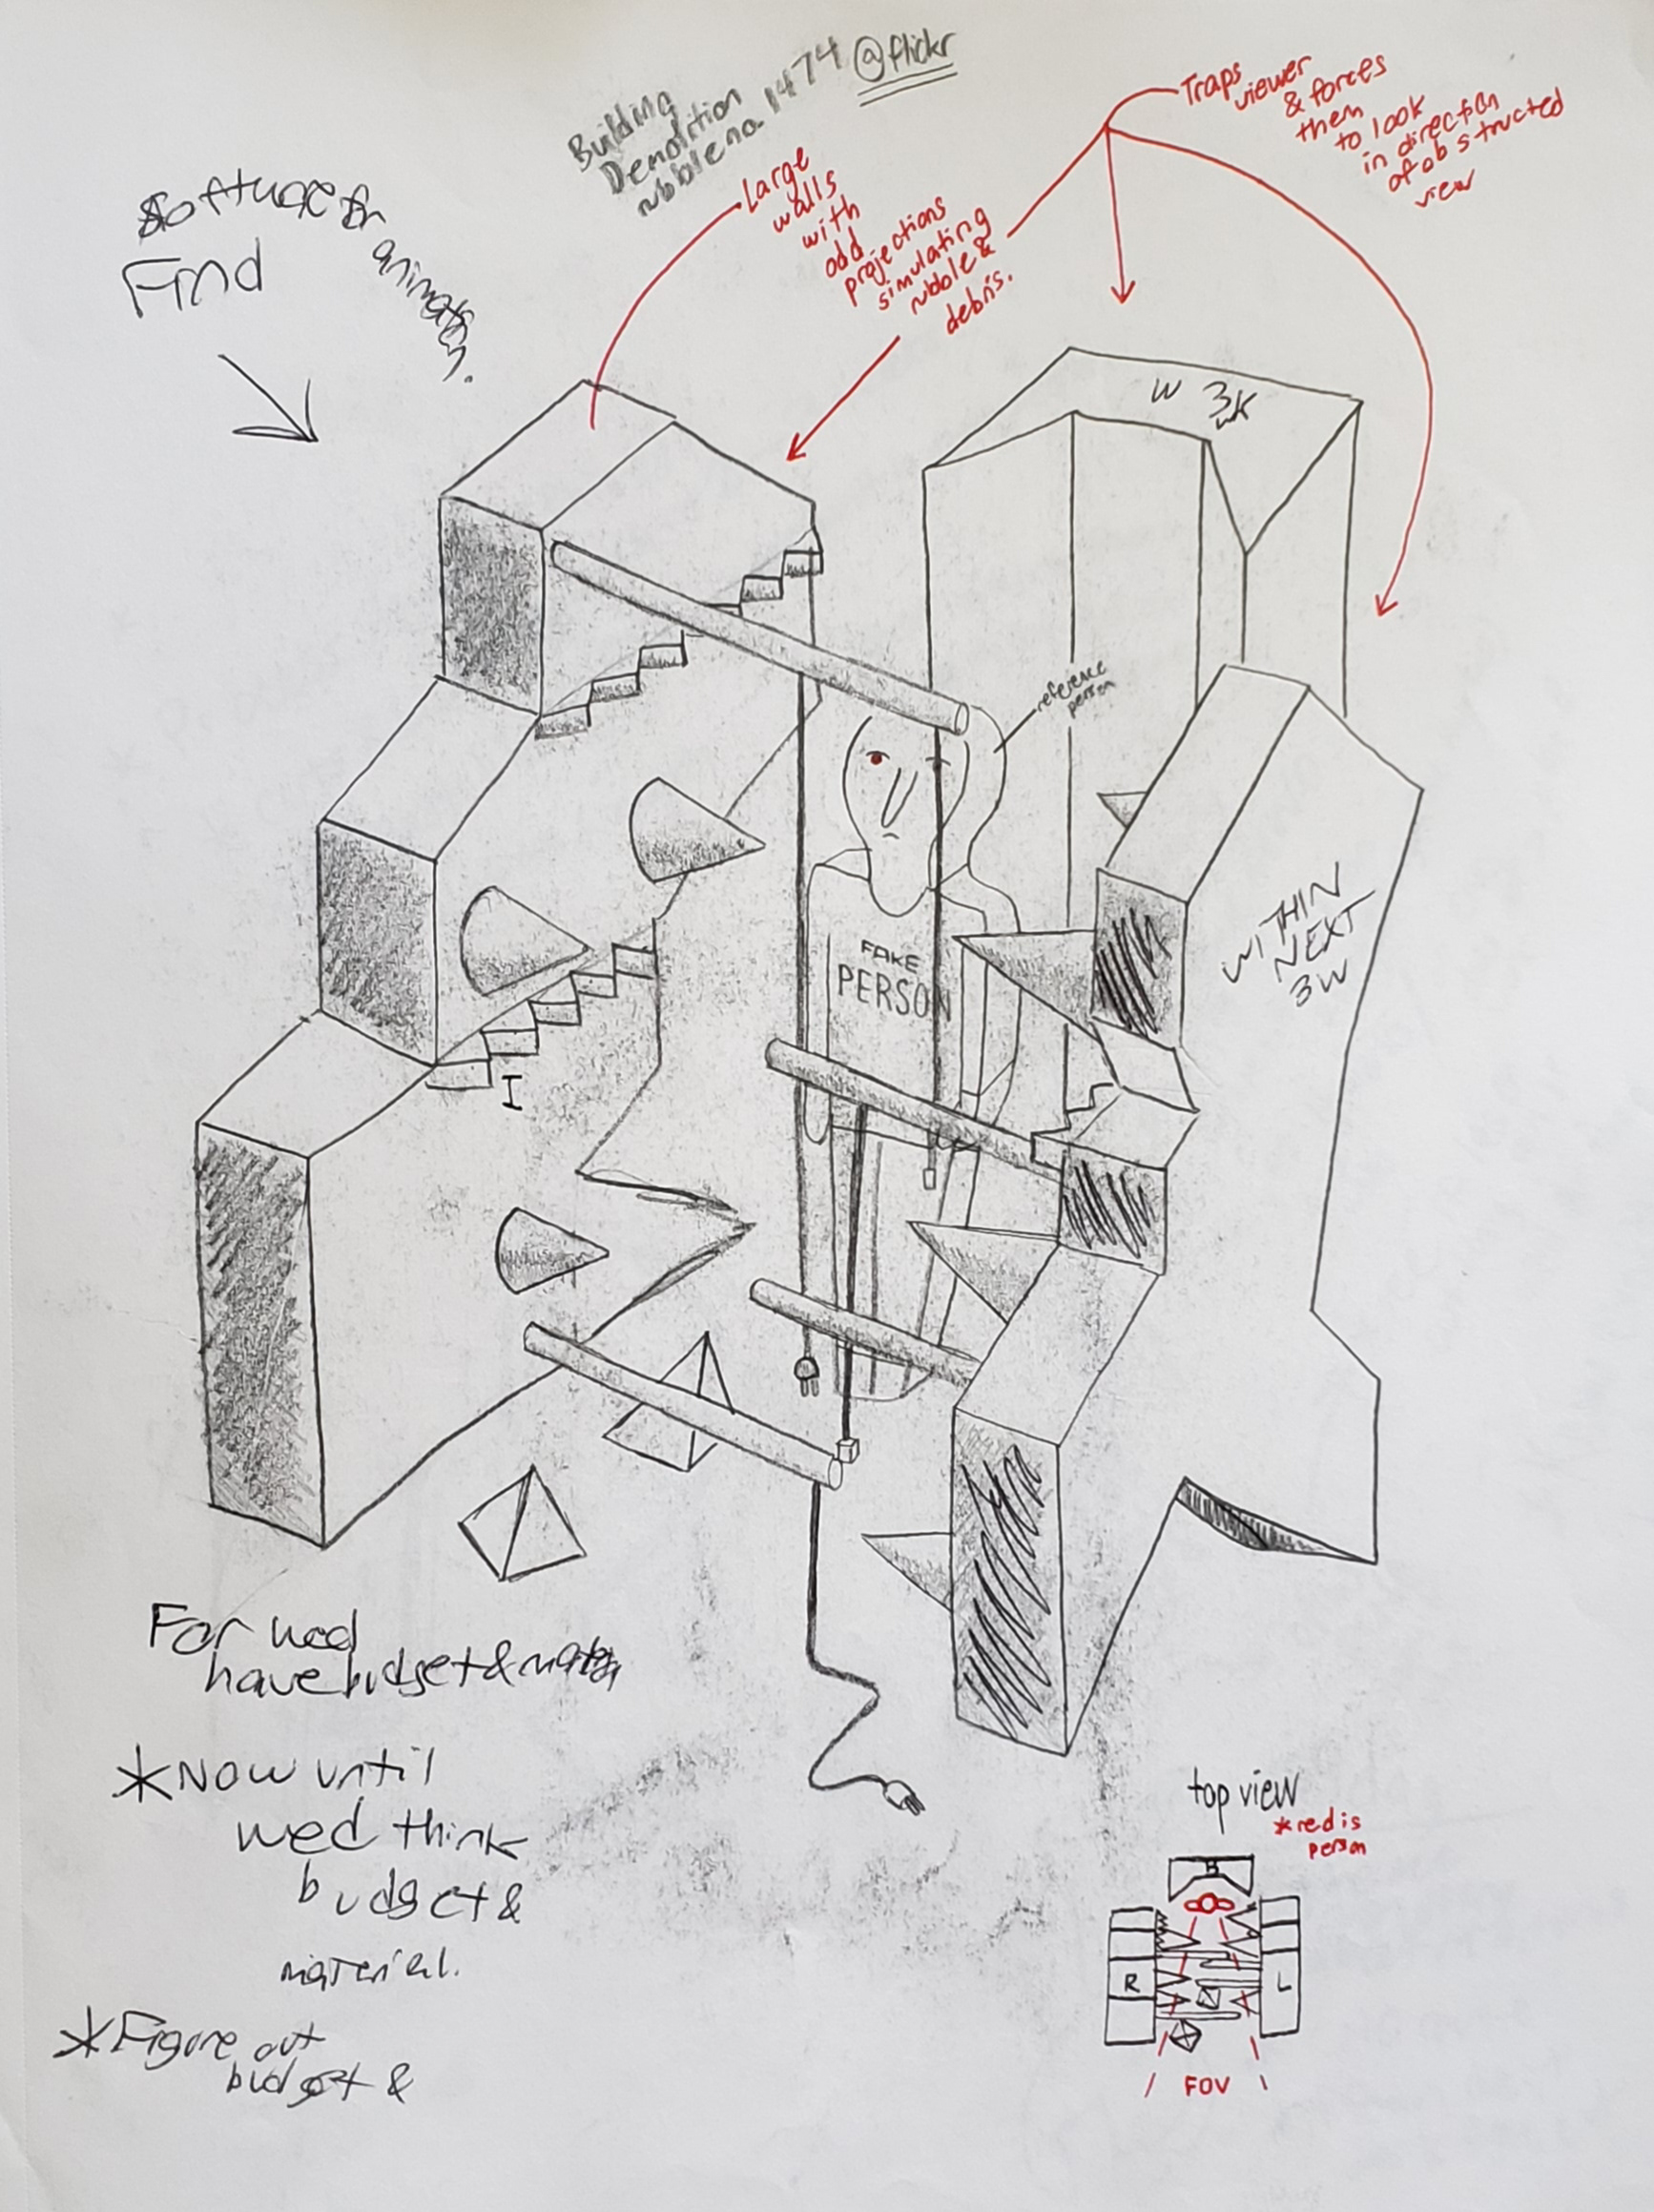 Building
Demolition
rubble no. 1474 @flickr
Traps
viewer
& forces
them
to look
in direction
of obstructed
view
Large
walls
with
odd
projections
simulating
rubble &
debris.
Software for
animation.
Find
W 3
wK
reference
person
FAKE
PERSON
WITHIN
NEXT
3W
I
For wed
have budget &
*Now until
wed think
budget &
material.
*Figure out
budget &
top view
*red is
person
B
R
L
FOV